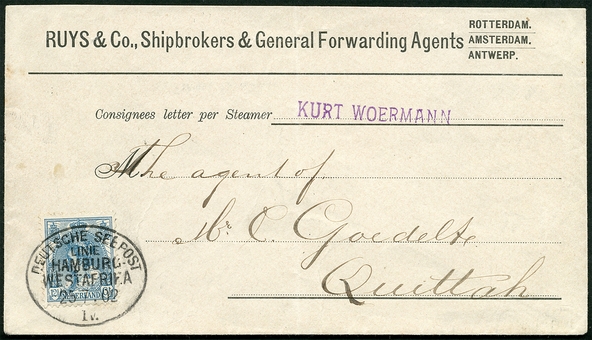 RUYS & Co., Shipbrokers & General Forwarding Agents
ROTTERDAM.
AMSTERDAM.
ANTWERP.
Consignees letter per Steamer KURT WOERMANN
The agent of
Mr C. Goedelte
Quittah
DEUTSCHE SEEPOST
LINIE
HAMBURG-
WESTAFRIKA
02
NEDERLAND